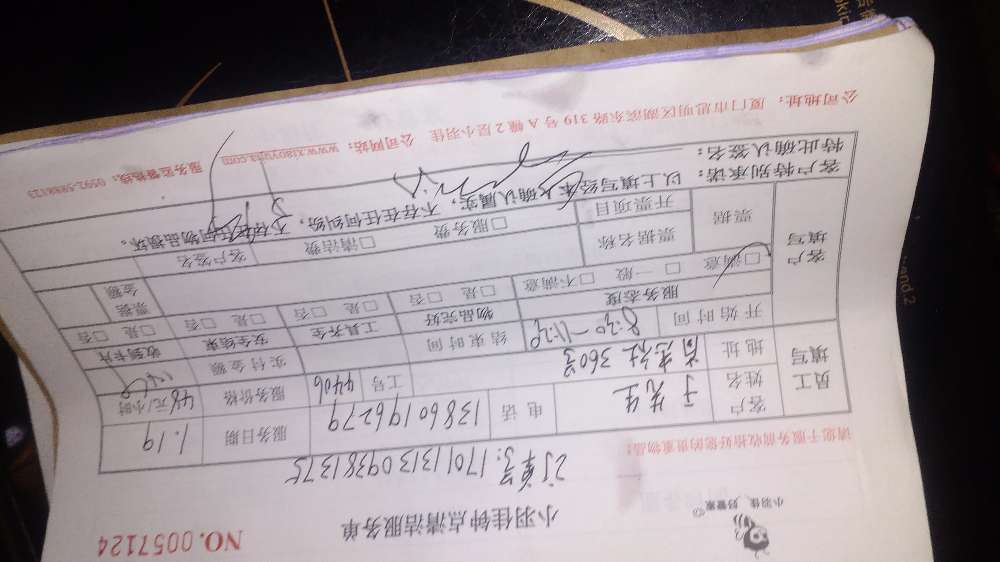 小羽佳，好管家
小羽佳钟点清洁服务单
NO.0057124
订单号:17011313093813 75
请您于服务前收拾好您的贵重物品!
员工填写
客户姓名 于先生 电话 13860196279 服务日期 1.19
地址 前忠社360号 工号 4406 服务价格 48元/小时
开始时间 8:20-11:20 结束时间 实付金额
客户填写
服务态度 物品完好 工具齐全 安全结束 收到卡片
□满意 □一般 □不满意 □是 □否 □是 □否 □是 □否 □是 □否
票据 票据名称 客户签名 票据金额
开票项目 □服务费 □清洁费
客户特别承诺: 以上填写经本人确认属实，不存在任何纠纷，不存在任何物品损坏。
特此确认签名:
公司地址: 厦门市思明区湖滨东路319号A幢2层小羽佳 公司网站: www.xiaoyujia.com 服务监督热线: 0592-5988123